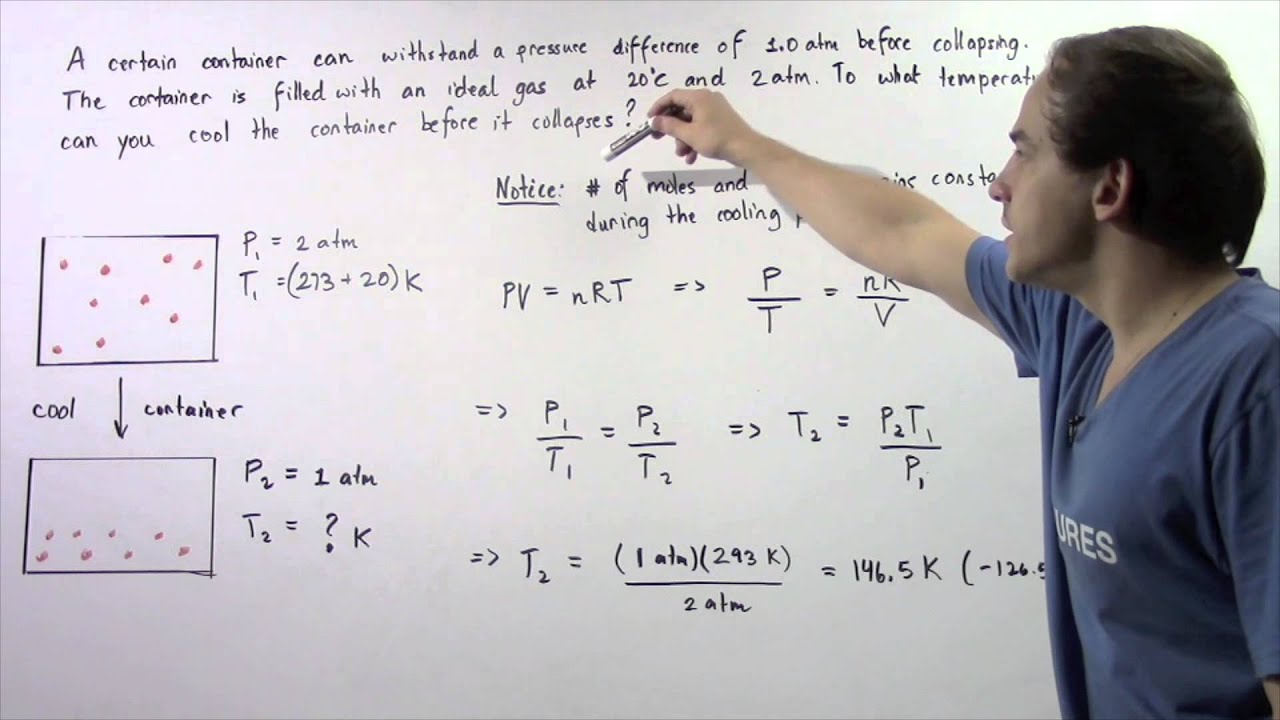 A certain container can withstand a pressure difference of 1.0 atm before collapsing.
The container is filled with an ideal gas at 20°C and 2 atm. To what temperatu
can you cool the container before it collapses?
Notice: # of moles and
during the cooling
P₁ = 2 atm
T₁ = (273 + 20) K
PV = nRT => P/T = nR/V
cool container
=> P₁/T₁ = P₂/T₂ => T₂ = P₂T₁/P₁
P₂ = 1 atm
T₂ = ? K
=> T₂ = (1 atm)(293 K)/2 atm = 146.5 K (-126.5
URES